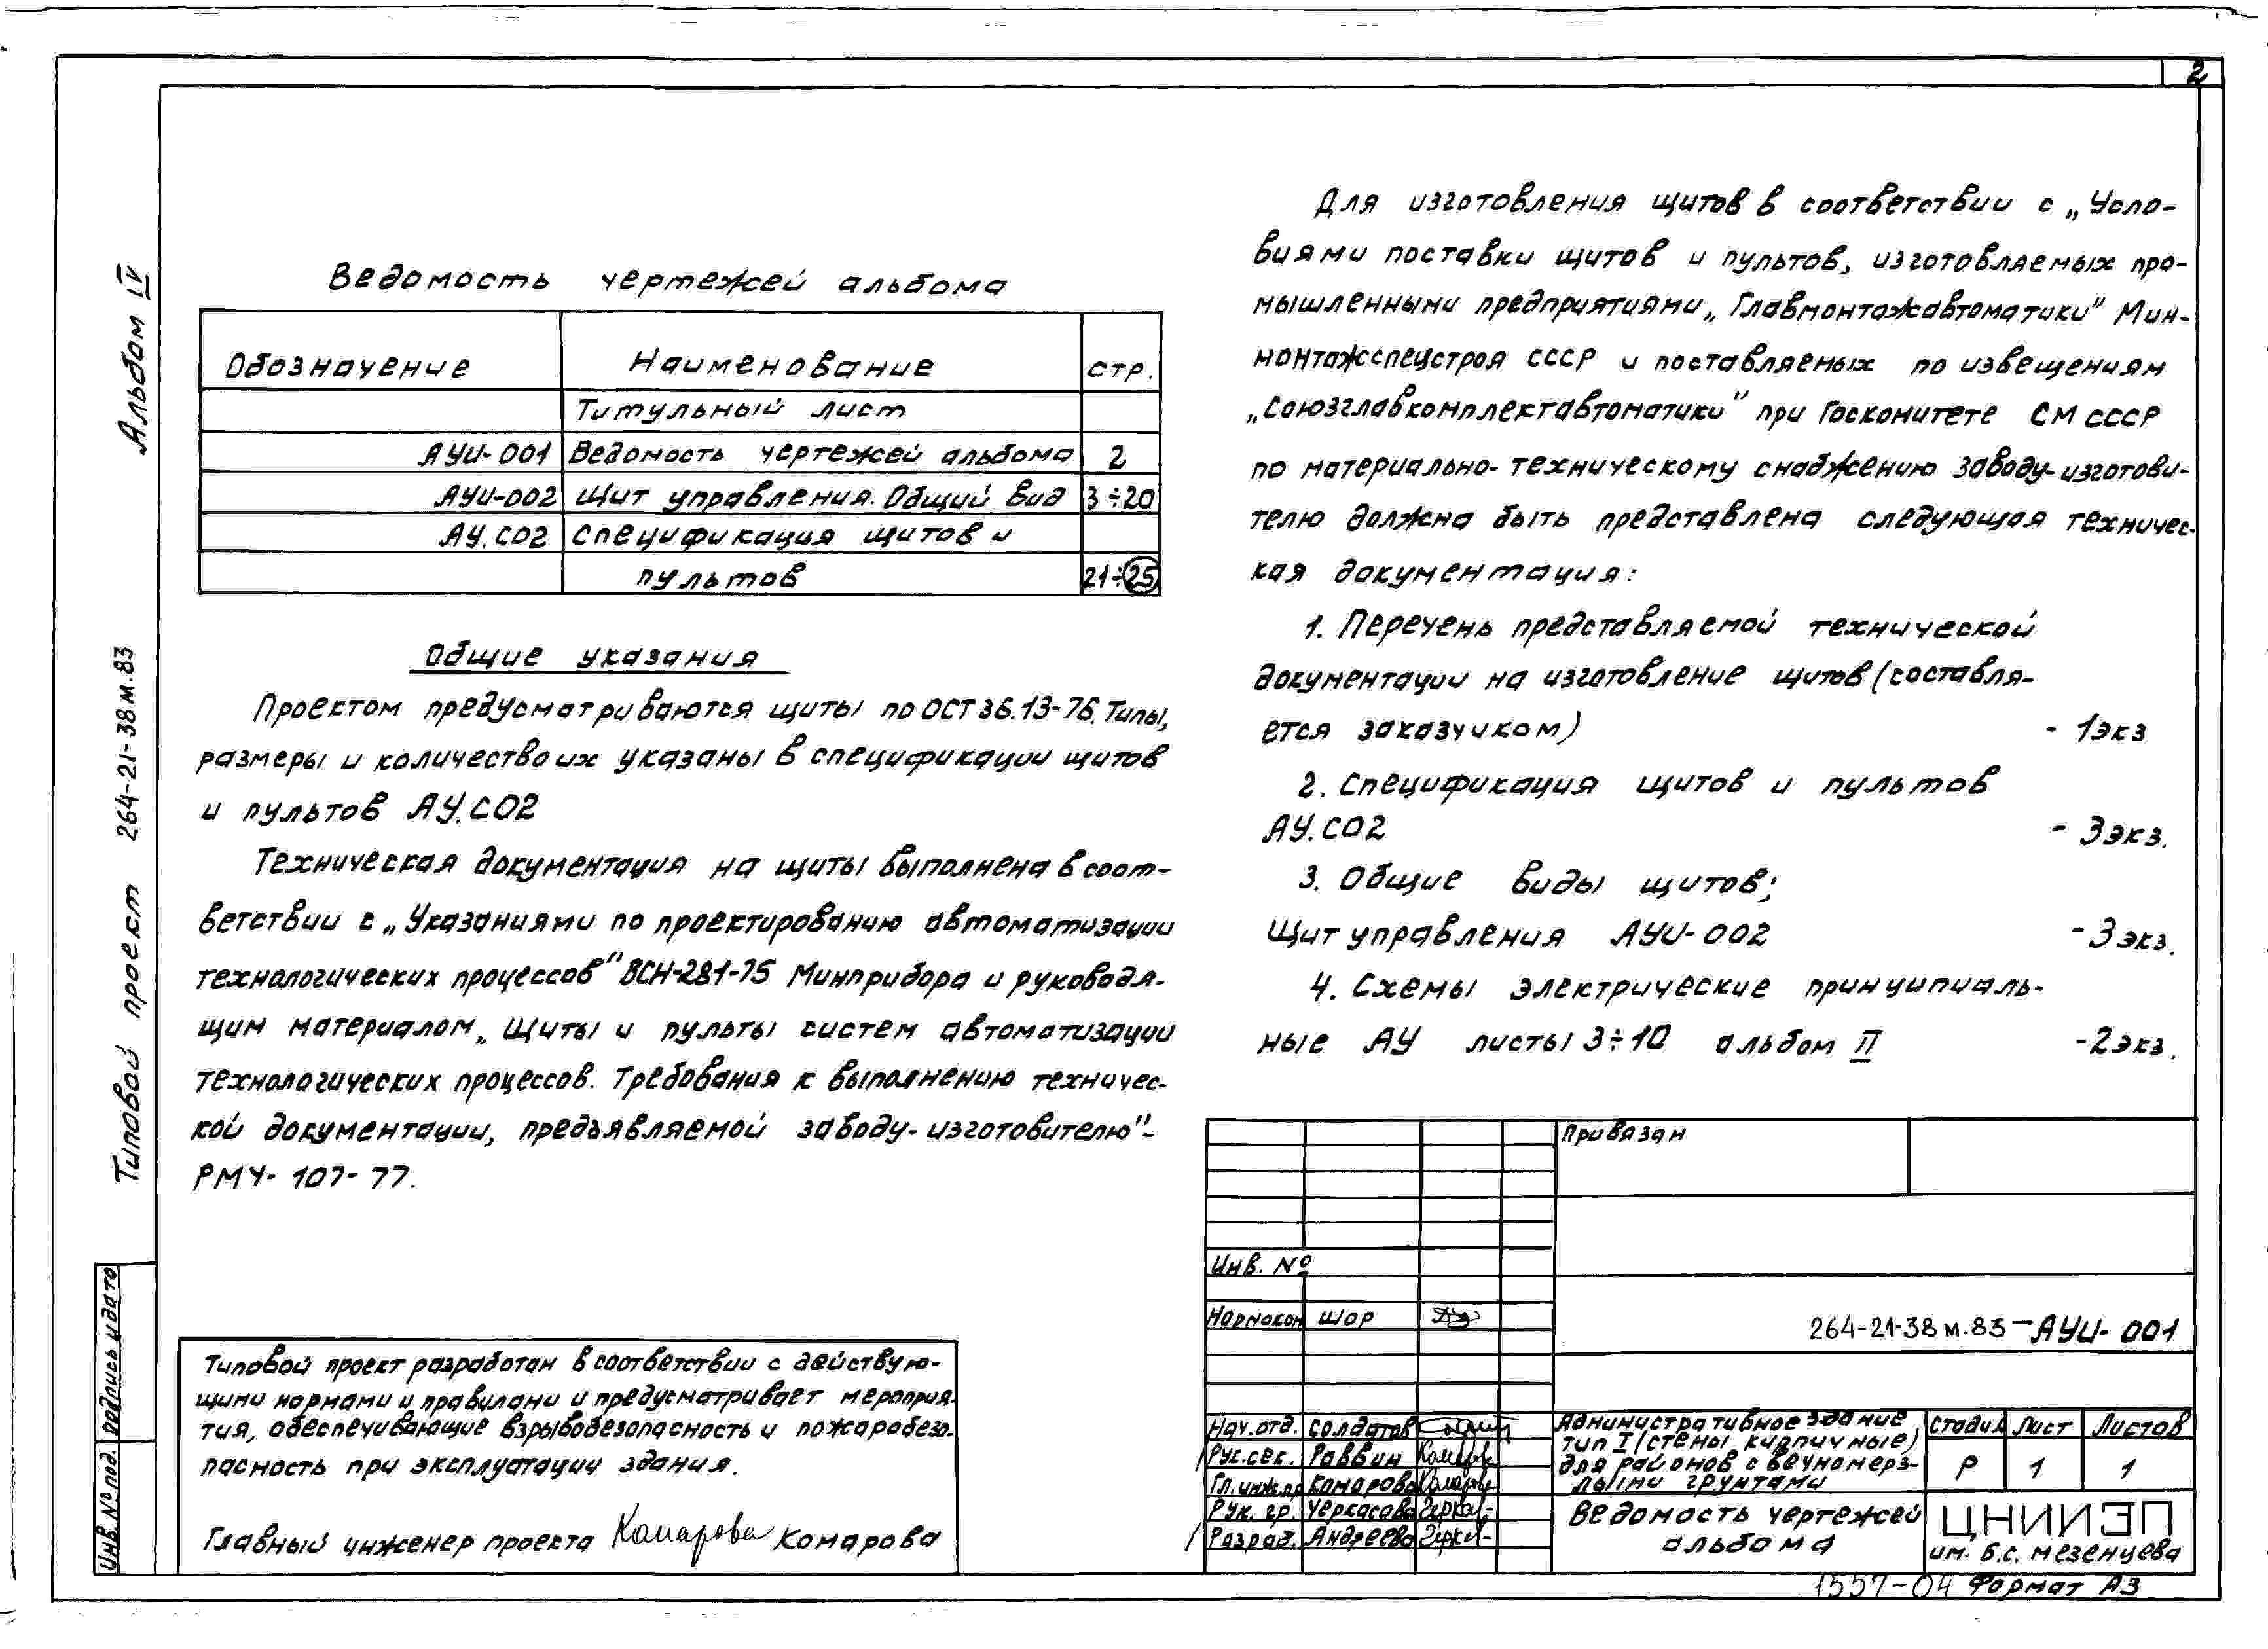 2
Альбом IV
Типовой проект 264-21-38.м.83
Ведомость чертежей альбома
Обозначение Наименование стр.
Титульный лист
АУИ-001 Ведомость чертежей альбома 2
АУИ-002 Щит управления. Общий вид 3÷20
АУ.СО2 Спецификация щитов и
пультов 21÷25
Общие указания
Проектом предусматриваются щиты по ОСТ 36.13-76. Типы,
размеры и количество их указаны в спецификации щитов
и пультов АУ.СО2
Техническая документация на щиты выполнена в соот-
ветствии с „Указаниями по проектированию автоматизации
технологических процессов" ВСН-281-75 Минприбора и руководя-
щим материалом „Щиты и пульты систем автоматизации
технологических процессов. Требования к выполнению техничес-
кой документации, предъявляемой заводу-изготовителю"-
РМ4-107-77.
Для изготовления щитов в соответствии с „Усло-
виями поставки щитов и пультов, изготовляемых про-
мышленными предприятиями „Главмонтажавтоматики" Мин-
монтажспецстроя СССР и поставляемых по извещениям
„Союзглавкомплектавтоматики" при Госкомитете СМ СССР
по материально-техническому снабжению заводу-изготови-
телю должна быть представлена следующая техничес-
кая документация:
1. Перечень представляемой технической
документации на изготовление щитов (составля-
ется заказчиком) - 1экз
2. Спецификация щитов и пультов
АУ.СО2 - 3экз.
3. Общие виды щитов;
Щит управления АУИ-002 - 3экз.
4. Схемы электрические принципиаль-
ные АУ листы 3÷10 альбом II -2экз.
Типовой проект разработан в соответствии с действую-
щими нормами и правилами и предусматривает мероприя-
тия, обеспечивающие взрывобезопасность и пожаробезо-
пасность при эксплуатации здания.
Главный инженер проекта Комарова Комарова
Инв. № под. Подпись и дата
Привязан
Инв. №
Нормокон Шор
264-21-38 м.83-АУИ-001
Нач.отд. Солдатов
Рук.сек. Раввин Комаров
Гл.инж.пр Комарова Комарова
Рук. гр. Черкасова Черкас-
Разраб. Андреева Черкас-
Административное здание
тип I (стены кирпичные)
для районов с вечномерз-
лыми грунтами
Стадия Лист Листов
Р 1 1
Ведомость чертежей
альбома
ЦНИИЭП
им. Б.С. Мезенцева
1557-04 Формат А3